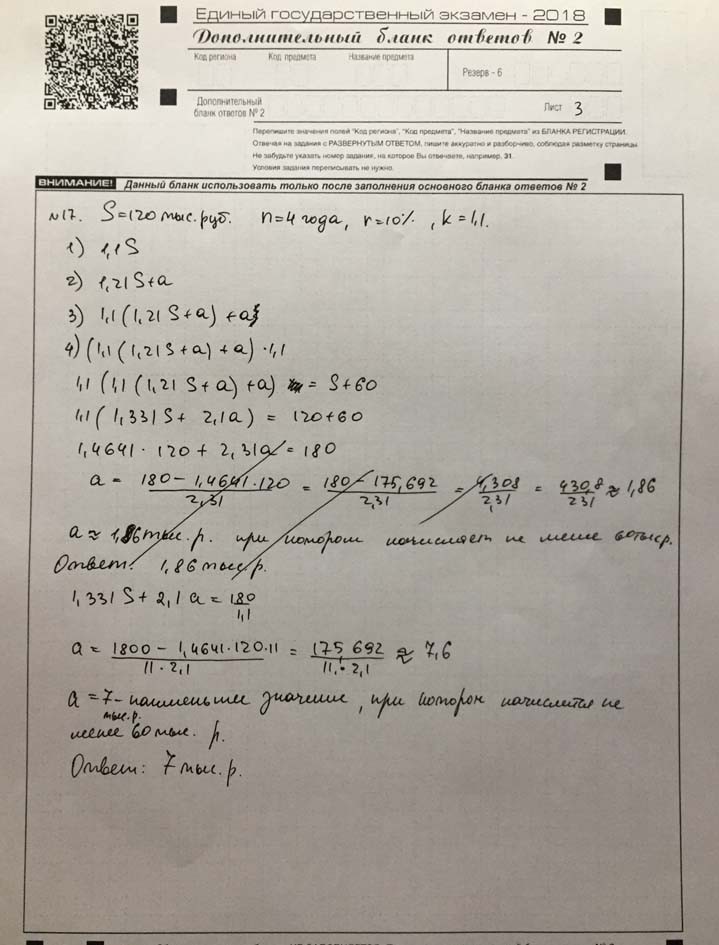 Единый государственный экзамен - 2018
Дополнительный бланк ответов № 2
Код региона Код предмета Название предмета
Резерв - 6
Дополнительный
бланк ответов № 2
Лист 3
Перепишите значения полей "Код региона", "Код предмета", "Название предмета" из БЛАНКА РЕГИСТРАЦИИ.
Отвечая на задания с РАЗВЕРНУТЫМ ОТВЕТОМ, пишите аккуратно и разборчиво, соблюдая разметку страницы.
Не забудьте указать номер задания, на которое Вы отвечаете, например, 31.
Условия задания переписывать не нужно.
ВНИМАНИЕ! Данный бланк использовать только после заполнения основного бланка ответов № 2
№17. S=120 тыс.руб. n=4 года, r=10%, k=1,1.
1) 1,1S
2) 1,21S+a
3) 1,1(1,21S+a)+a
4) (1,1(1,21S+a)+a)·1,1
1,1(1,1(1,21S+a)+a) = S+60
1,1(1,331S+2,1a) = 120+60
1,4641·120+2,31a = 180
a = (180-1,4641·120)/2,31 = (180-175,692)/2,31 = 4,308/2,31 = 430,8/231 ≈ 1,86
a ≈ 1,86 тыс.р. при котором начисляет не меньше 60 тыс.р.
Ответ: 1,86 тыс.р.
1,331S+2,1a = 180/1,1
a = (1800-1,4641·120·11)/(11·2,1) = 175,692/(11·2,1) ≈ 7,6
a = 7 - наименьшее значение, при котором начислится не
тыс.р.
менее 60 тыс. р.
Ответ: 7 тыс.р.